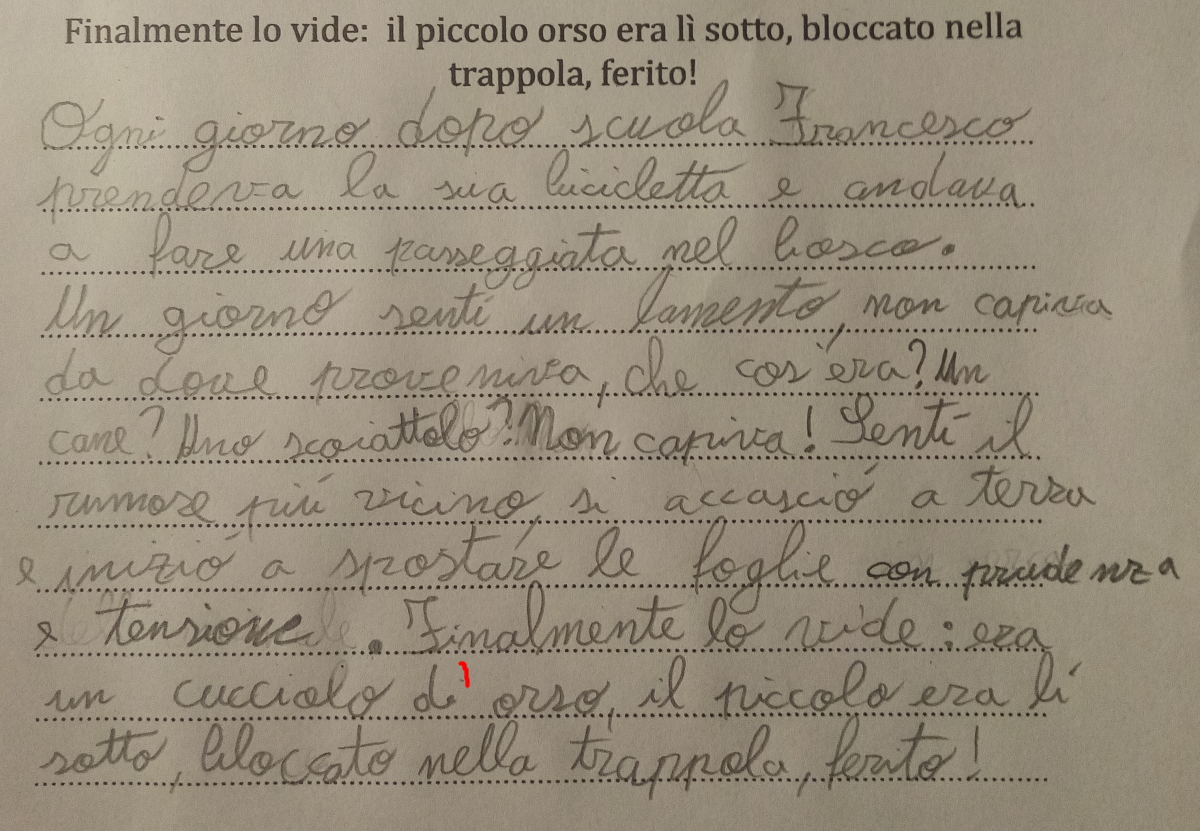 Finalmente lo vide: il piccolo orso era lì sotto, bloccato nella
trappola, ferito!
Ogni giorno dopo scuola Francesco
prendeva la sua bicicletta e andava
a fare una passeggiata nel bosco.
Un giorno sentí un lamento, non capiva
da dove proveniva, che cos'era? Un
cane? Uno scoiattolo? Non capiva! Sentí il
rumore piú vicino, si accasció a terra
e inizió a spostare le foglie con prudenza
e tensione. Finalmente lo vide: era
un cucciolo d' orso, il piccolo era lí
sotto, bloccato nella trappola, ferito!